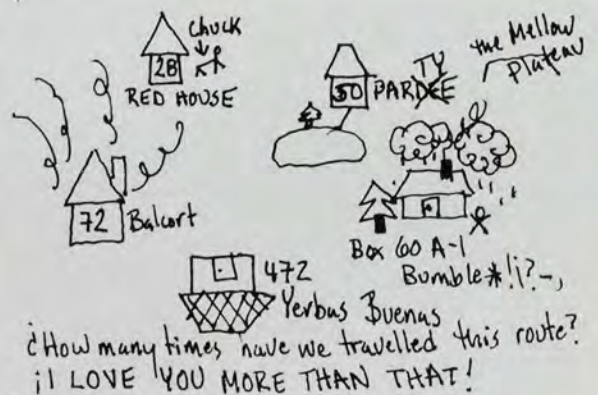 chuck
28
RED HOUSE
TY
50 PARDEE
the Mellow
Plateau
72 Balcort
Box 60 A-1
Bumble*!¡?-,
472
Yerbas Buenas
¿How many times have we travelled this route?
¡I LOVE YOU MORE THAN THAT!